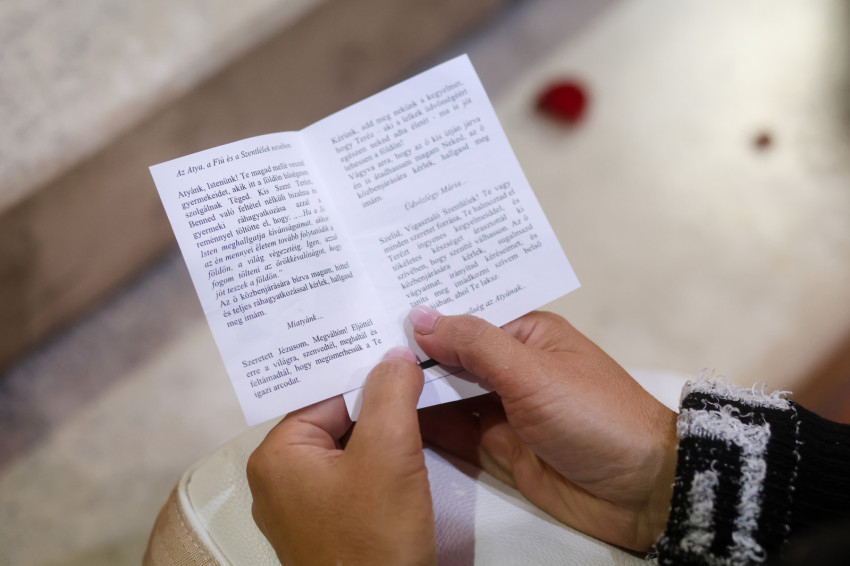 Az Atya, a Fiú és a Szentlélek nevében
Atyánk, Istenünk! Te magad mellé veszed
gyermekeidet, akik itt a földön hűségesen
szolgálnak Téged. Kis Szent Teréz
Benned való feltétel nélküli bizalma és
gyermeki ráhagyatkozása azzal a
reménnyel töltötte el, hogy: „...Ha a Jó
Isten meghallgatja kívánságomat, akkor
az én mennyei életem tovább folytatódik a
földön, a világ végezetéig. Igen, azzal
fogom tölteni az örökkévalóságot, hogy
jót teszek a földön.”
Az ő közbenjárására bízva magam, hittel
és teljes ráhagyatkozással kérlek, hallgasd
meg imám.
Miatyánk...
Szeretett Jézusom, Megváltóm! Eljöttél
erre a világra, szenvedtél, meghaltál és
feltámadtál, hogy megismerhessük a Te
igazi arcodat.
Kérünk, add meg nekünk a kegyelmet,
hogy Teréz - aki a lelkek üdvösségéért
egészen neked adta életét - ma is jót
tehessen a földön!
Vágyva arra, hogy az ő kis útján járva
én is átadhassam magam Neked, az ő
közbenjárására kérlek, hallgasd meg
imám.
Üdvözlégy Mária...
Szelíd, Vigasztaló Szentlélek! Te vagy
minden szeretet forrása. Te halmoztad el
Terézt ingyenes kegyelmeiddel, és
tökéletes készséget árasztottál ki
szívében, hogy szentté válhasson. Az ő
közbenjárására kérlek, sugalmazd
vágyaimat, irányítsd kéréseimet, és
taníts meg imádkozni szívem belső
ájában, ahol Te laksz.
őség az Atyának...